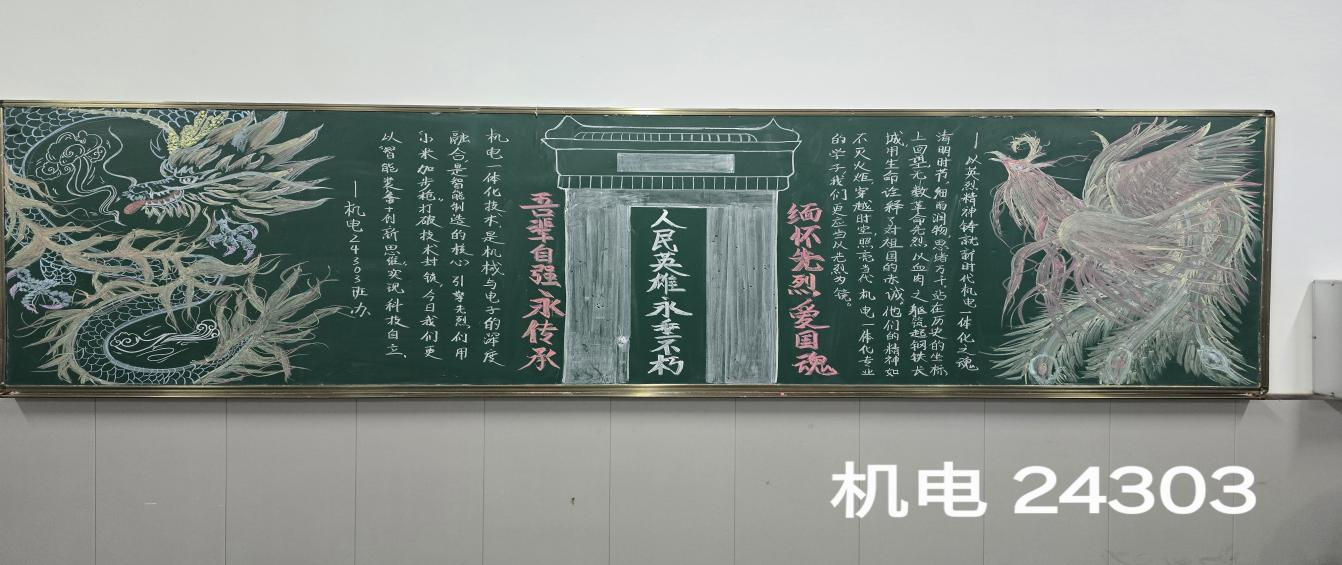 缅怀先烈爱国魂
——以英烈精神铸就新时代机电一体化之魂
清明时节，细雨润物思绪万千，站在历史的坐标
上回望，无数革命先烈，以血肉之躯筑起钢铁长
城，用生命诠释了对祖国的赤诚，他们的精神如
不灭火炬，穿越时空照亮当代，机电一体化专业
的学子，我们更应当以先烈为镜。
人民英雄永垂不朽
吾辈自强永传承
机电一体化技术，是机械与电子的深度
融合，是智能制造的核心引擎先烈们用
“小米加步枪”打破技术封锁，今日我们更
以“智能装备+创新思维”实现科技自立，
——机电24303班办
机电 24303